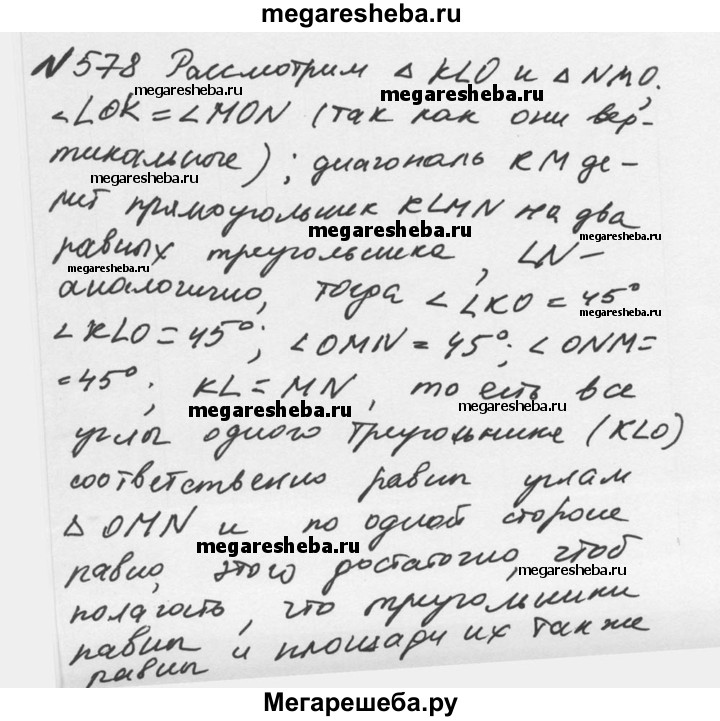 megaresheba.ru
№578 Рассмотрим △ KLO и △ NMO.
megaresheba.ru
∠LOK = ∠MON (так как они вер-
тикальные); диагональ KM де-
megaresheba.ru
лит прямоугольник KLMN на два
megaresheba.ru
равных треугольника, LN –
megaresheba.ru
аналогично, тогда ∠LKO = 45°
∠KLO = 45°; ∠OMN = 45°; ∠ONM =
= 45°; KL = MN, то есть все
megaresheba.ru
megaresheba.ru
углы одного треугольника (KLO)
соответственно равны углам
△ OMN и по одной стороне
megaresheba.ru
равно, этого достаточно, чтоб
megaresheba.ru
полагать, что треугольники
равны и площади их также
равны
Мегарешеба.ру